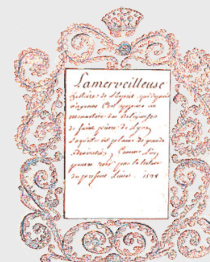 Lamerveilleuse
histoire de l'esprit qui depuis
nagueres s'est apparu au
monastere des religieuses
de saint pierre de Lyon
Laquelle est plaine de grande
admiration, Comme l'on
pourra veoir par la lecture
du present Livre. 1528